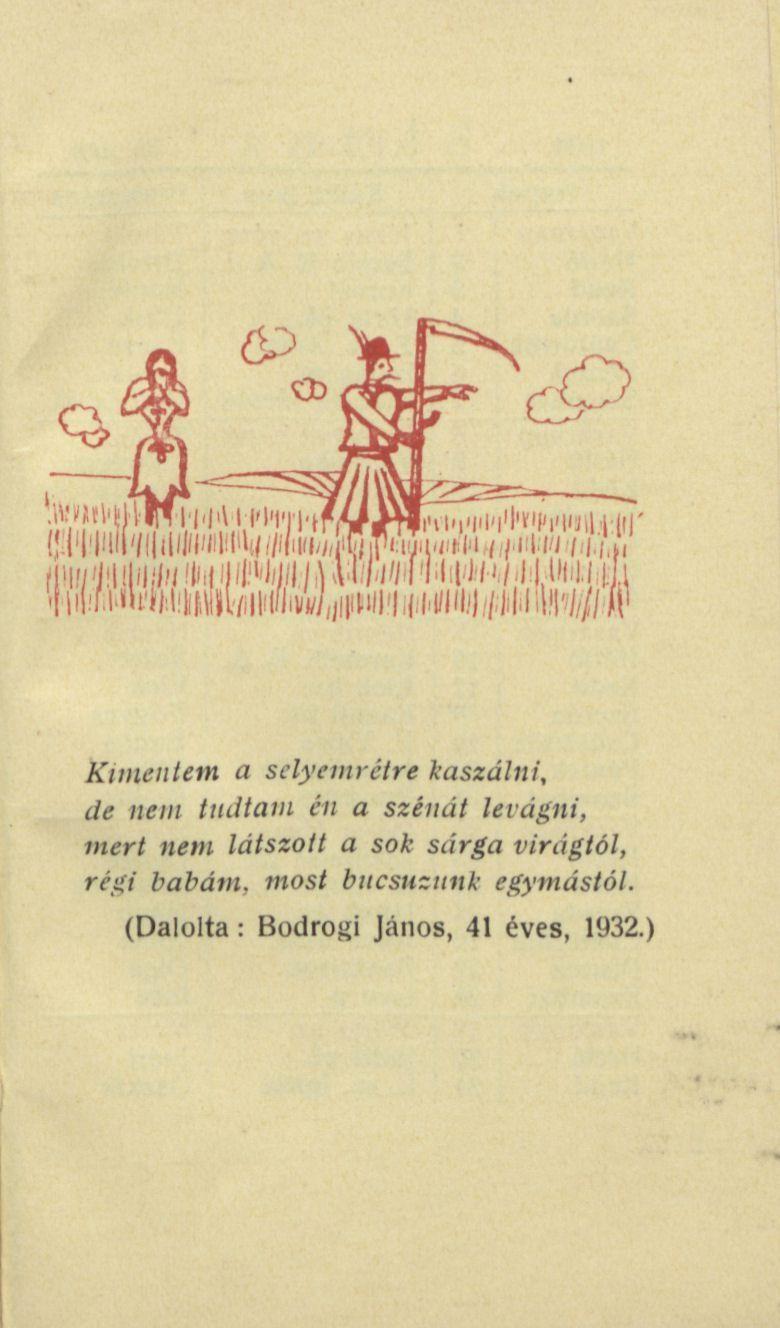 Kimentem a selyemrétre kaszálni,
de nem tudtam én a szénát levágni,
mert nem látszott a sok sárga virágtól,
régi babám, most bucsuzunk egymástól.
(Dalolta : Bodrogi János, 41 éves, 1932.)